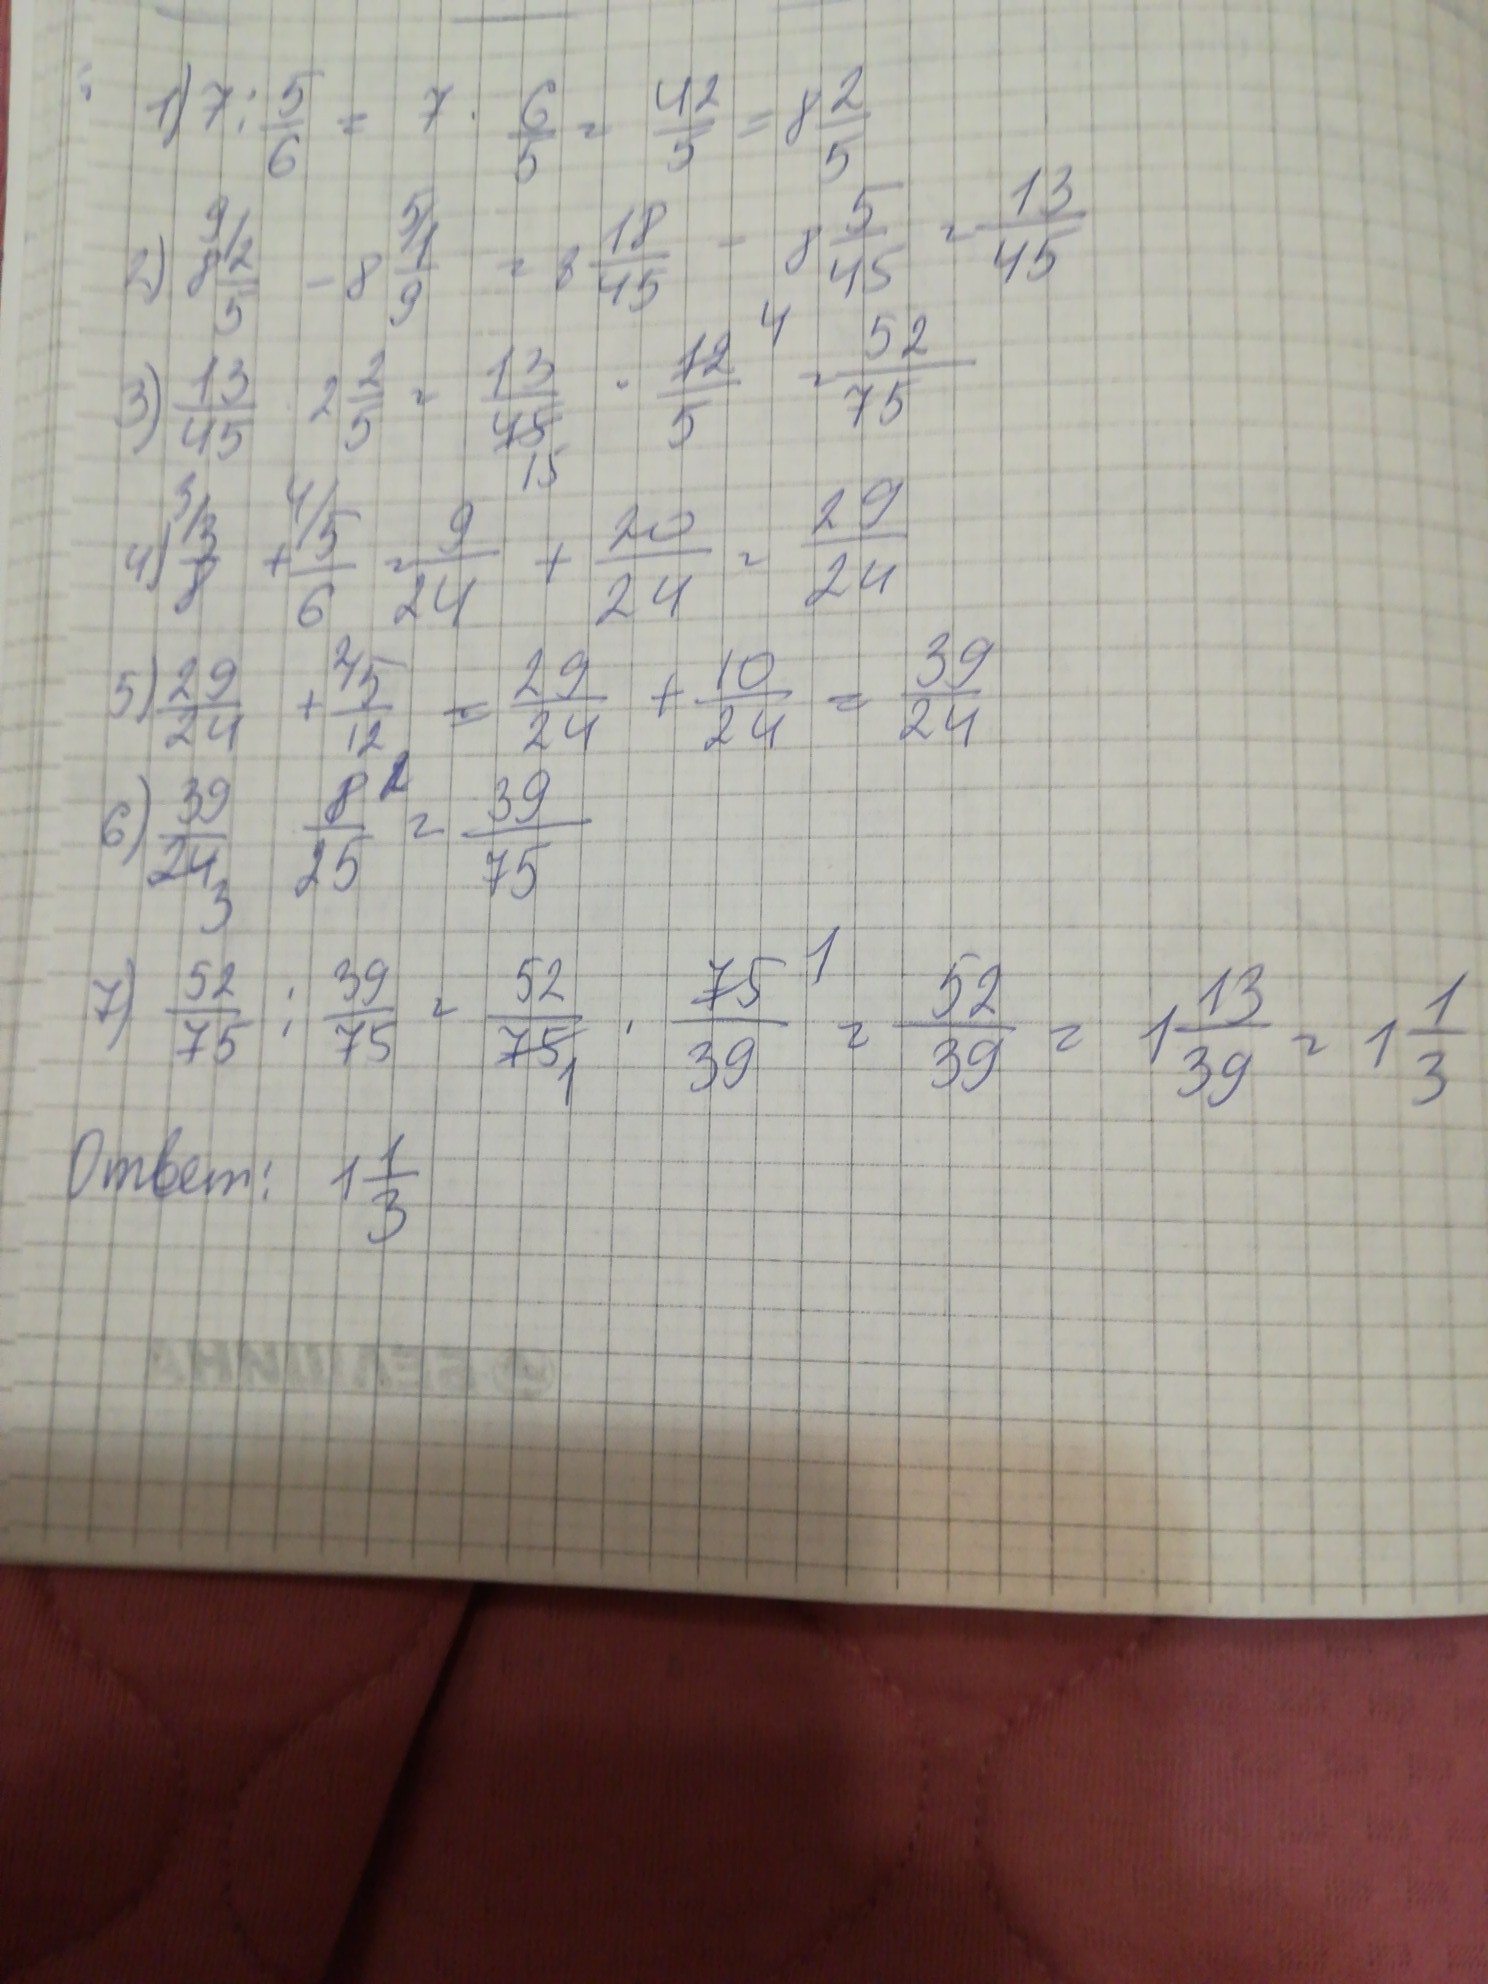 1) 7 : 5/6 = 7 · 6/5 = 42/5 = 8 2/5
2) 8 9/2/5 - 8 5/1/9 = 8 18/45 - 8 5/45 = 13/45
3) 13/45 2 2/5 = 13/45 15 · 12/5 4 = 52/75
4) 3/3/8 + 4/5/6 = 9/24 + 20/24 = 29/24
5) 29/24 + 2/5/12 = 29/24 + 10/24 = 39/24
6) 39/24 3 8/25 1 = 39/75
7) 52/75 : 39/75 = 52/75 1 · 75/39 1 = 52/39 = 1 13/39 = 1 1/3
Ответ: 1 1/3
БЕЛШИНА